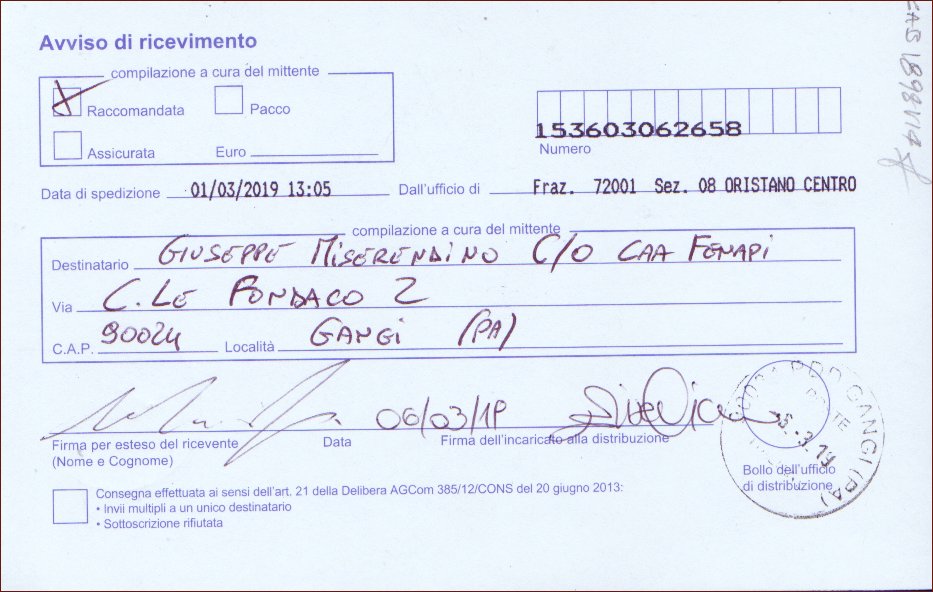 Avviso di ricevimento
compilazione a cura del mittente
Raccomandata Pacco
Assicurata Euro
153603062658
Numero
Data di spedizione 01/03/2019 13:05 Dall'ufficio di Fraz. 72001 Sez. 08 ORISTANO CENTRO
compilazione a cura del mittente
Destinatario GIUSEPPE MISERENDINO C/O CAA FENAPI
Via C.LE FONDACO 2
C.A.P. 90024 Località GANGI (PA)
06/03/19
Firma per esteso del ricevente Data Firma dell'incaricato alla distribuzione
(Nome e Cognome)
Bollo dell'ufficio
di distribuzione
GANGI (PA)
Consegna effettuata ai sensi dell'art. 21 della Delibera AGCom 385/12/CONS del 20 giugno 2013:
• Invii multipli a un unico destinatario
• Sottoscrizione rifiutata